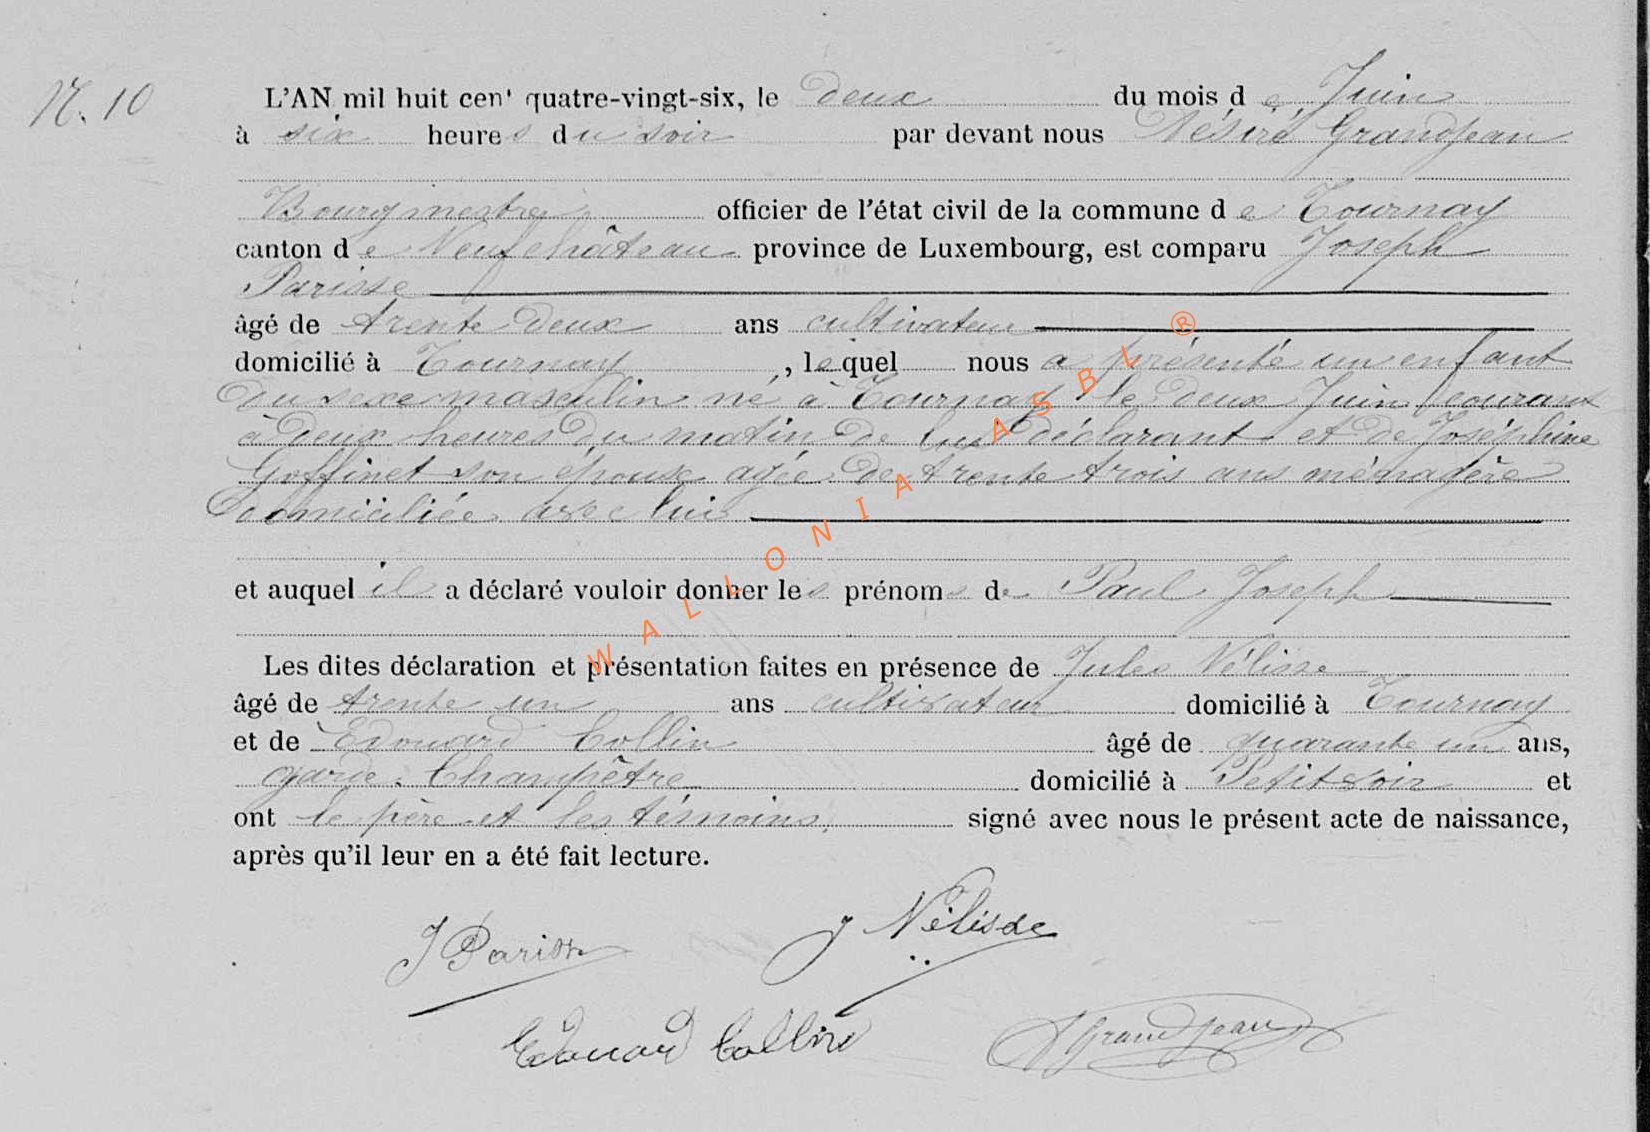 N. 10
L'AN mil huit cent quatre-vingt-six, le deux du mois de Juin
à six heures du soir par devant nous Désiré Grandjean
Bourgmestre officier de l'état civil de la commune de Tournay
canton de Neufchâteau province de Luxembourg, est comparu Joseph
Parisse
âgé de trente deux ans cultivateur
domicilié à Tournay, lequel nous a présenté un enfant
du sexe masculin né à Tournay le deux Juin courant
à deux heures du matin de lui déclarant et de Joséphine
Goffinet son épouse agée de trente trois ans ménagère
domiciliée avec lui
et auquel il a déclaré vouloir donner les prénoms de Paul Joseph
Les dites déclaration et présentation faites en présence de Jules Nélisse
âgé de trente un ans cultivateur domicilié à Tournay
et de Edouard Collin âgé de quarante un ans,
garde Champêtre domicilié à Petitvoir et
ont le père et les témoins, signé avec nous le présent acte de naissance,
après qu'il leur en a été fait lecture.
J Parisse J Nélisse
Edouard Collin DGrandjean
WALLONIA ASBL ®